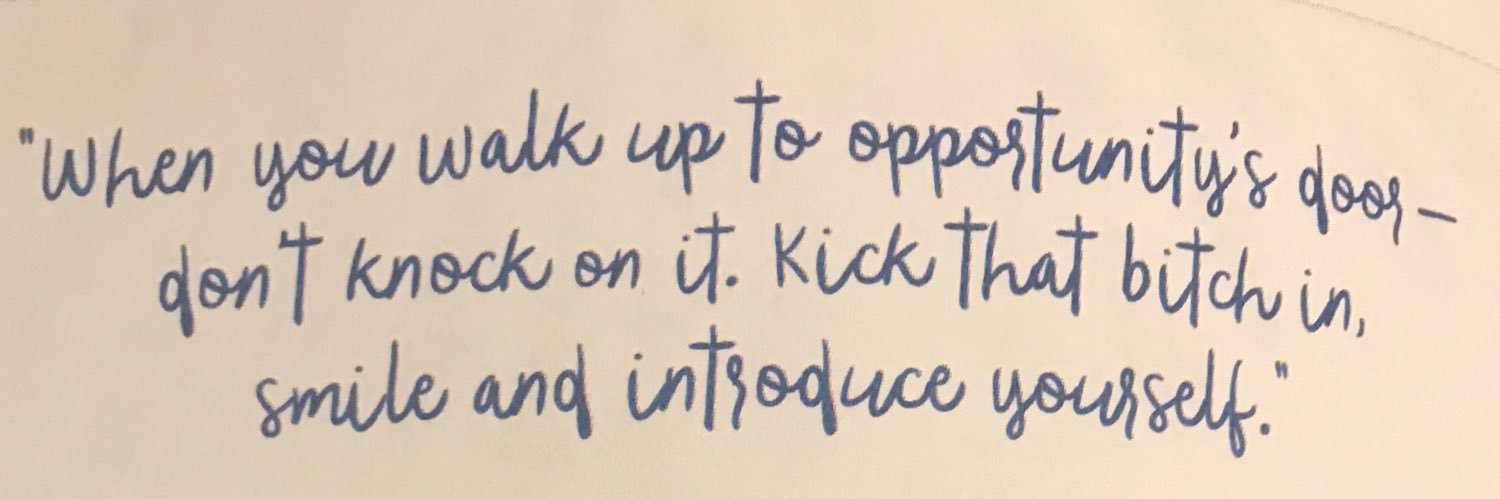 "When you walk up to opportunity's door–
don't knock on it. Kick that bitch in,
smile and introduce yourself."